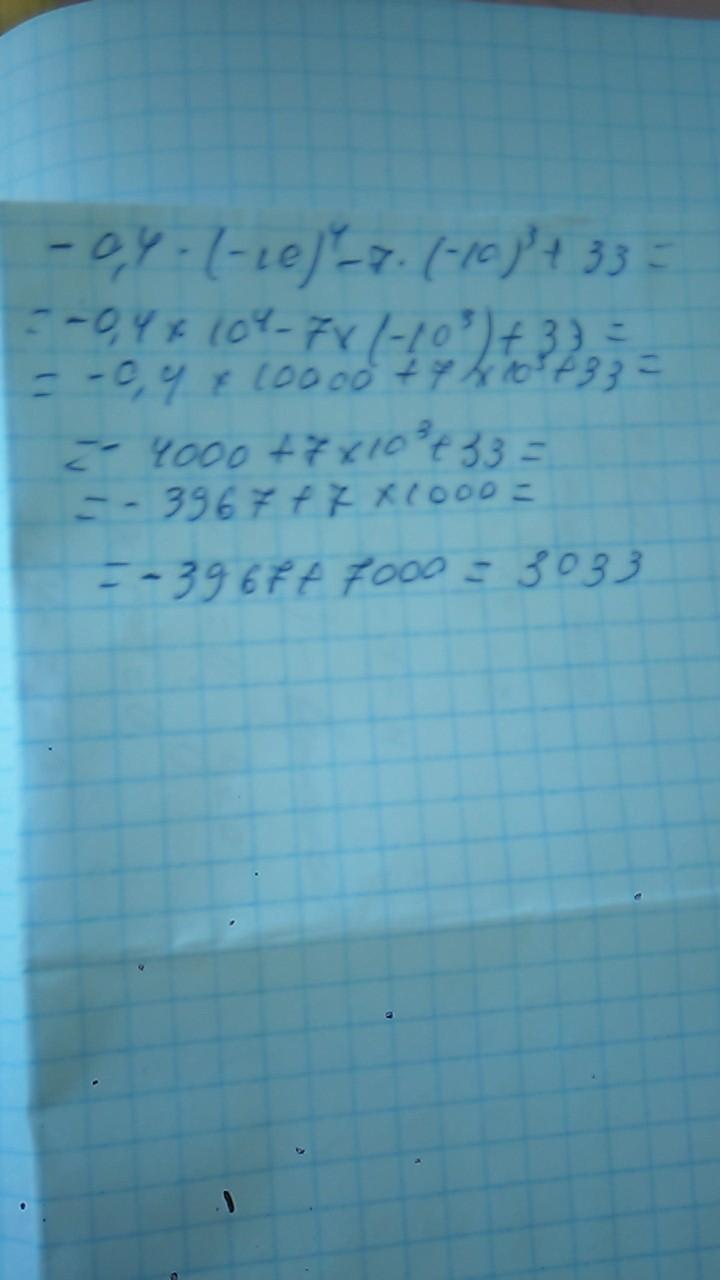 - 0,4 · (-10)⁴ - 7 · (-10)³ + 33 =
= -0,4 × 10⁴ - 7 × (-10³) + 33 =
= -0,4 × 10000 + 7 × 10³ + 33 =
= - 4000 + 7 × 10³ + 33 =
= - 3967 + 7 × 1000 =
= - 3967 + 7000 = 3033